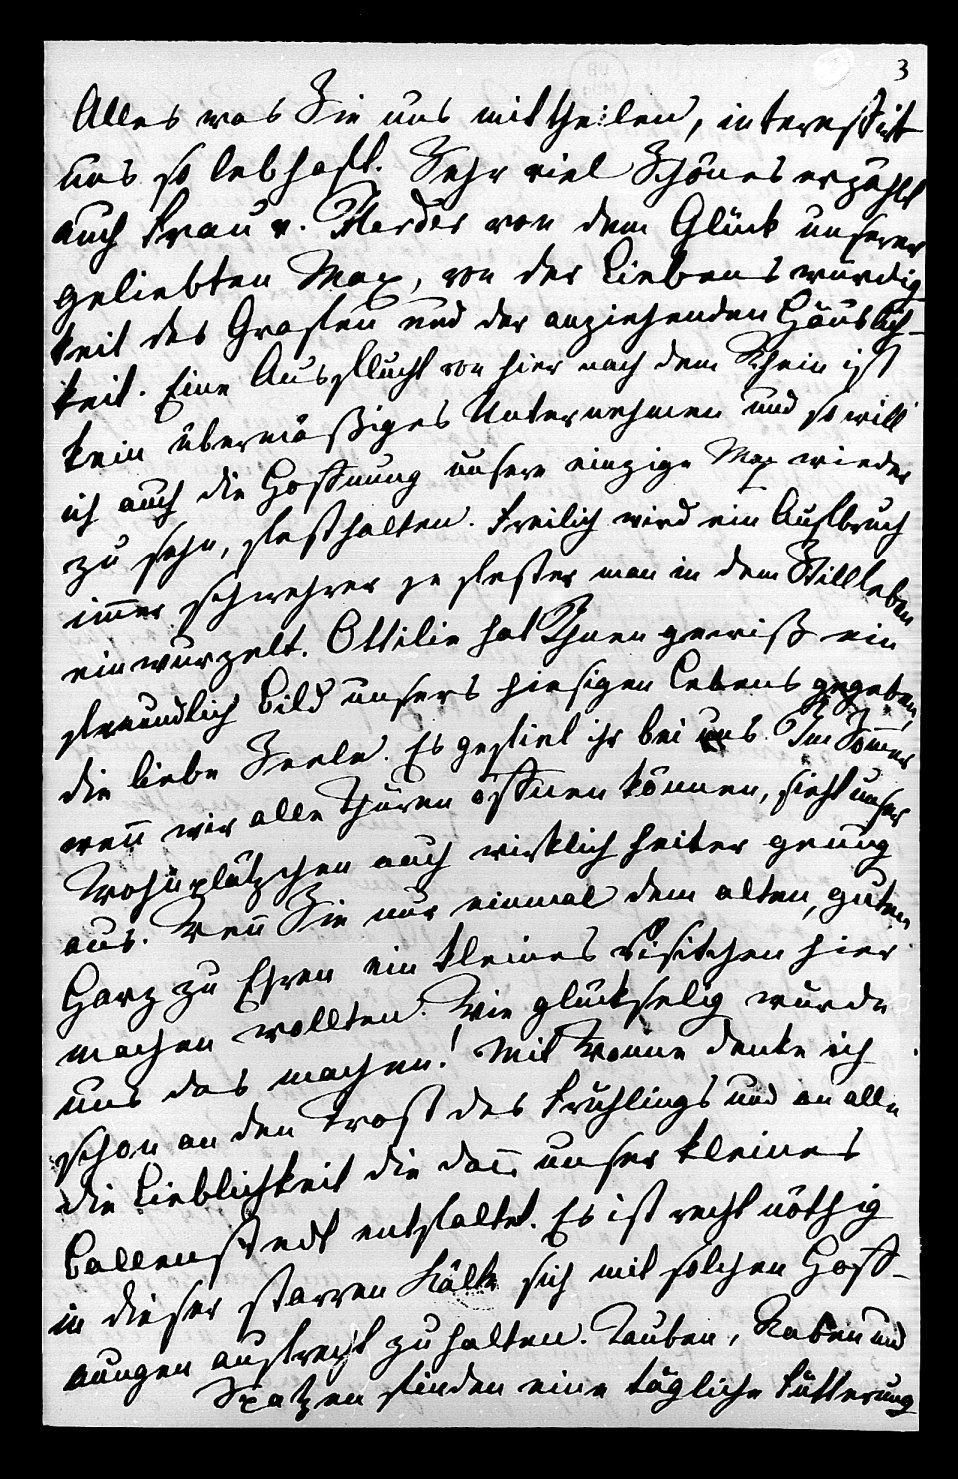 3
Alles was Sie uns mittheilen, interessirt
uns so lebhaft. Sehr viel Schönes erzählt
auch Frau v. Herder von dem Glück unserer
geliebten Max, von der Liebenswürdig
keit des Grafen und der anziehenden Häuslich-
keit. Eine Ausflucht von hier nach dem Rhein ist
kein übermäßiges Unternehmen und so will
ich auch die Hoffnung unsere einzige Max wieder
zu sehn, festhalten. Freilich wird ein Aufbruch
im̄er schwehrer je fester man in dem Stillleben
einwurzelt. Ottilie hat Ihnen gewiß ein
freundlich Bild unsers hiesigen Lebens gegeben,
die liebe Seele. Es gefiel ihr bei uns. Im Som̄er
wen̄ wir alle Thüren öffnen können, sieht unser
Wohnplätzchen auch wirklich heiter genug
aus. Wen̄ Sie nur einmal dem alten, guten
Harz zu Ehren ein kleines Visitchen hier
machen wollten. Wie glückselig würde
uns das machen! Mit Wonne denke ich
schon an den Trost des Frühlings und an alle
die Lieblichkeit die dan̄ unser kleines
Ballenstedt entfaltet. Es ist recht nöthig
in dieser starren Kälte sich mit solchen Hoff-
nungen aufrecht zu halten. Tauben, Raben und
Spatzen finden eine tägliche Fütterung